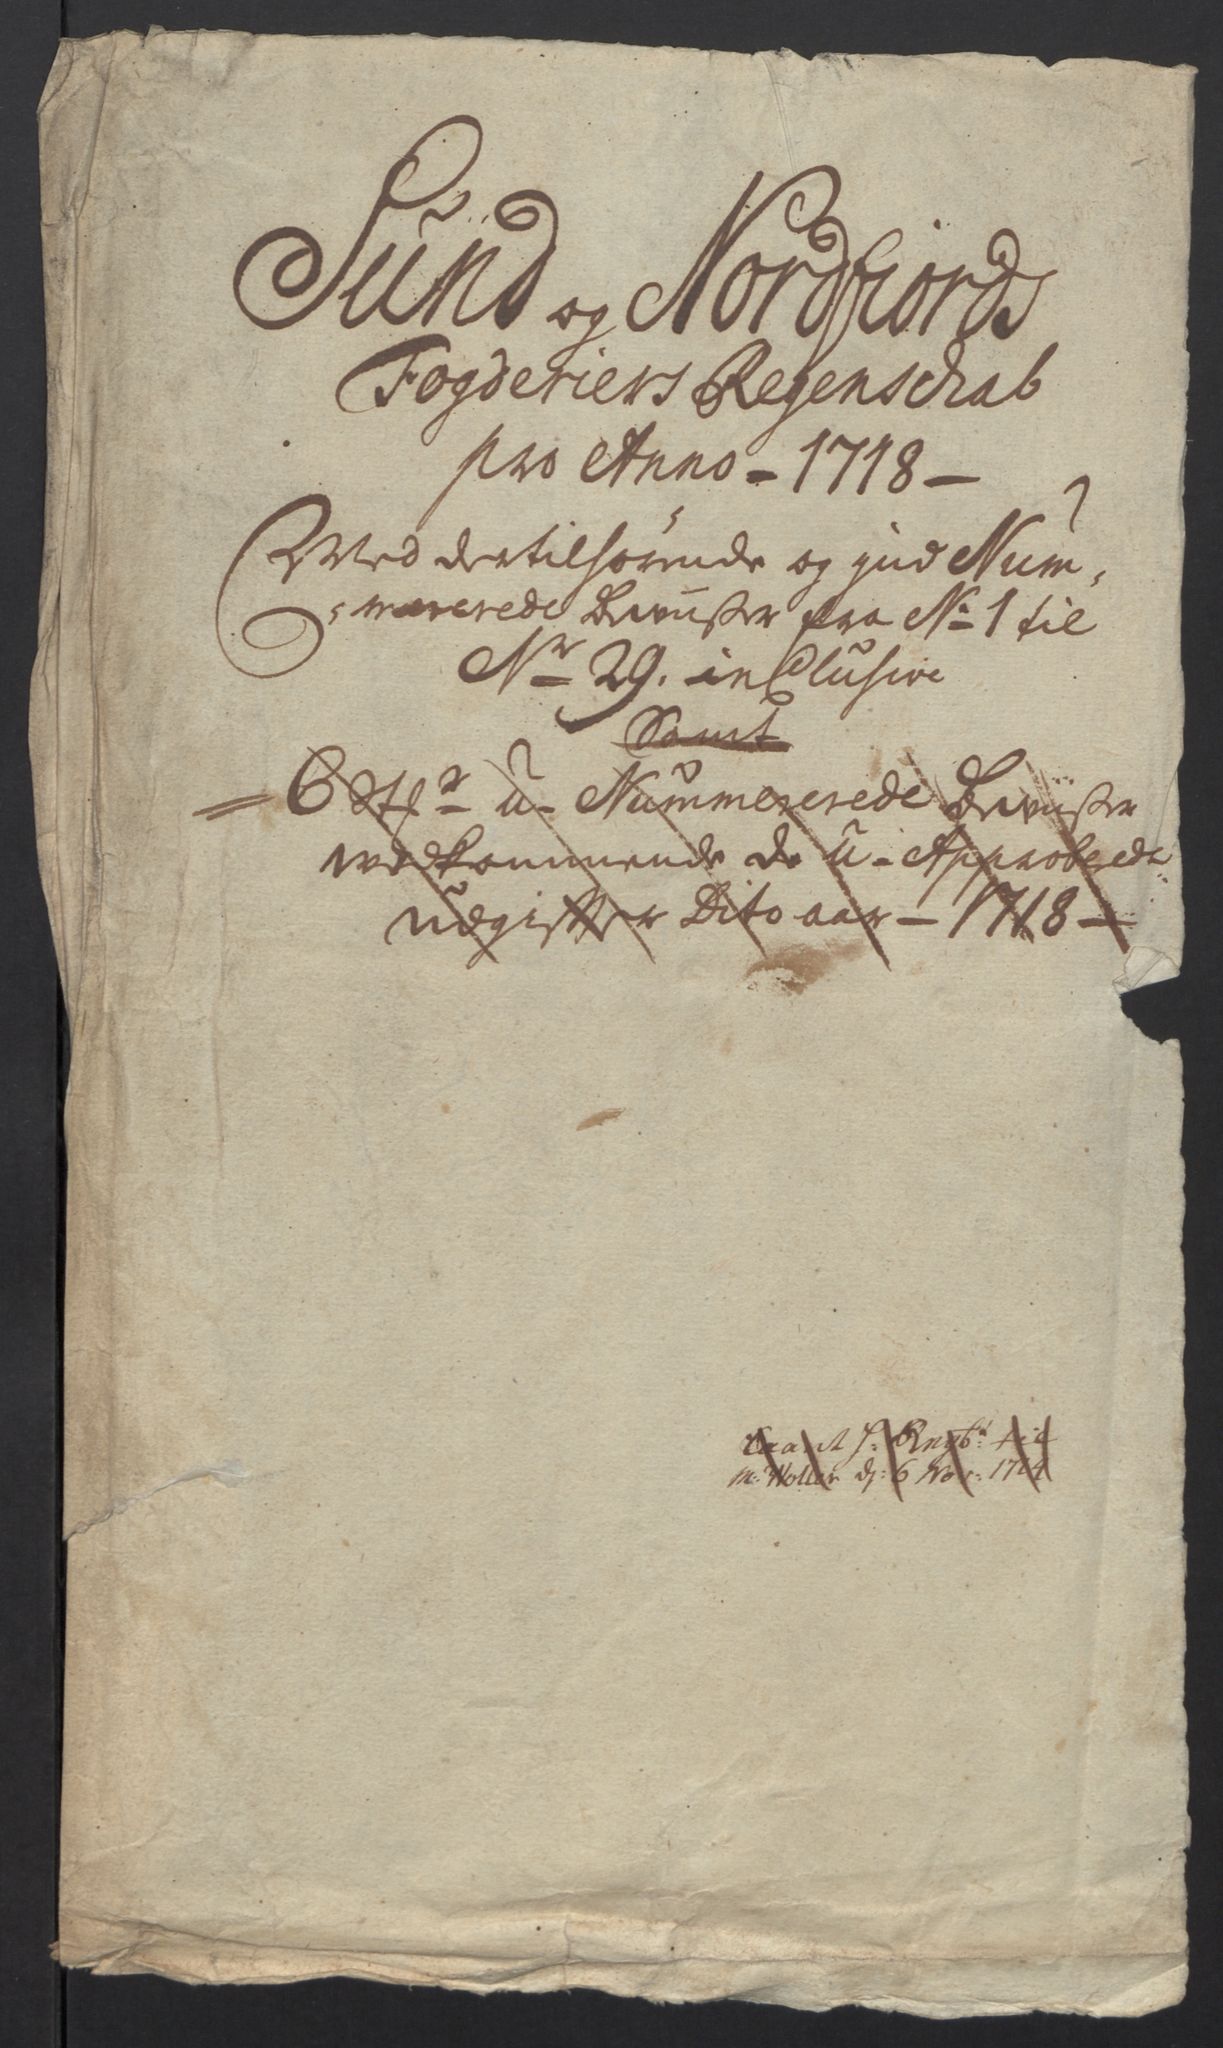 Sünd og Nordfiords
Fogderiers Regenschab
pro Anno - 1718 -
Med dertilhörende og ind Num,
,mererede Beviiser fra No 1 til
Nr 29. inclusive
Samt
= 6 St:r ü- Nummererede Beviiser
vedkommende de ü- Approberede
üdgifter Dito aar - 1718 -
m: Woller d: 6 Nov: 1724